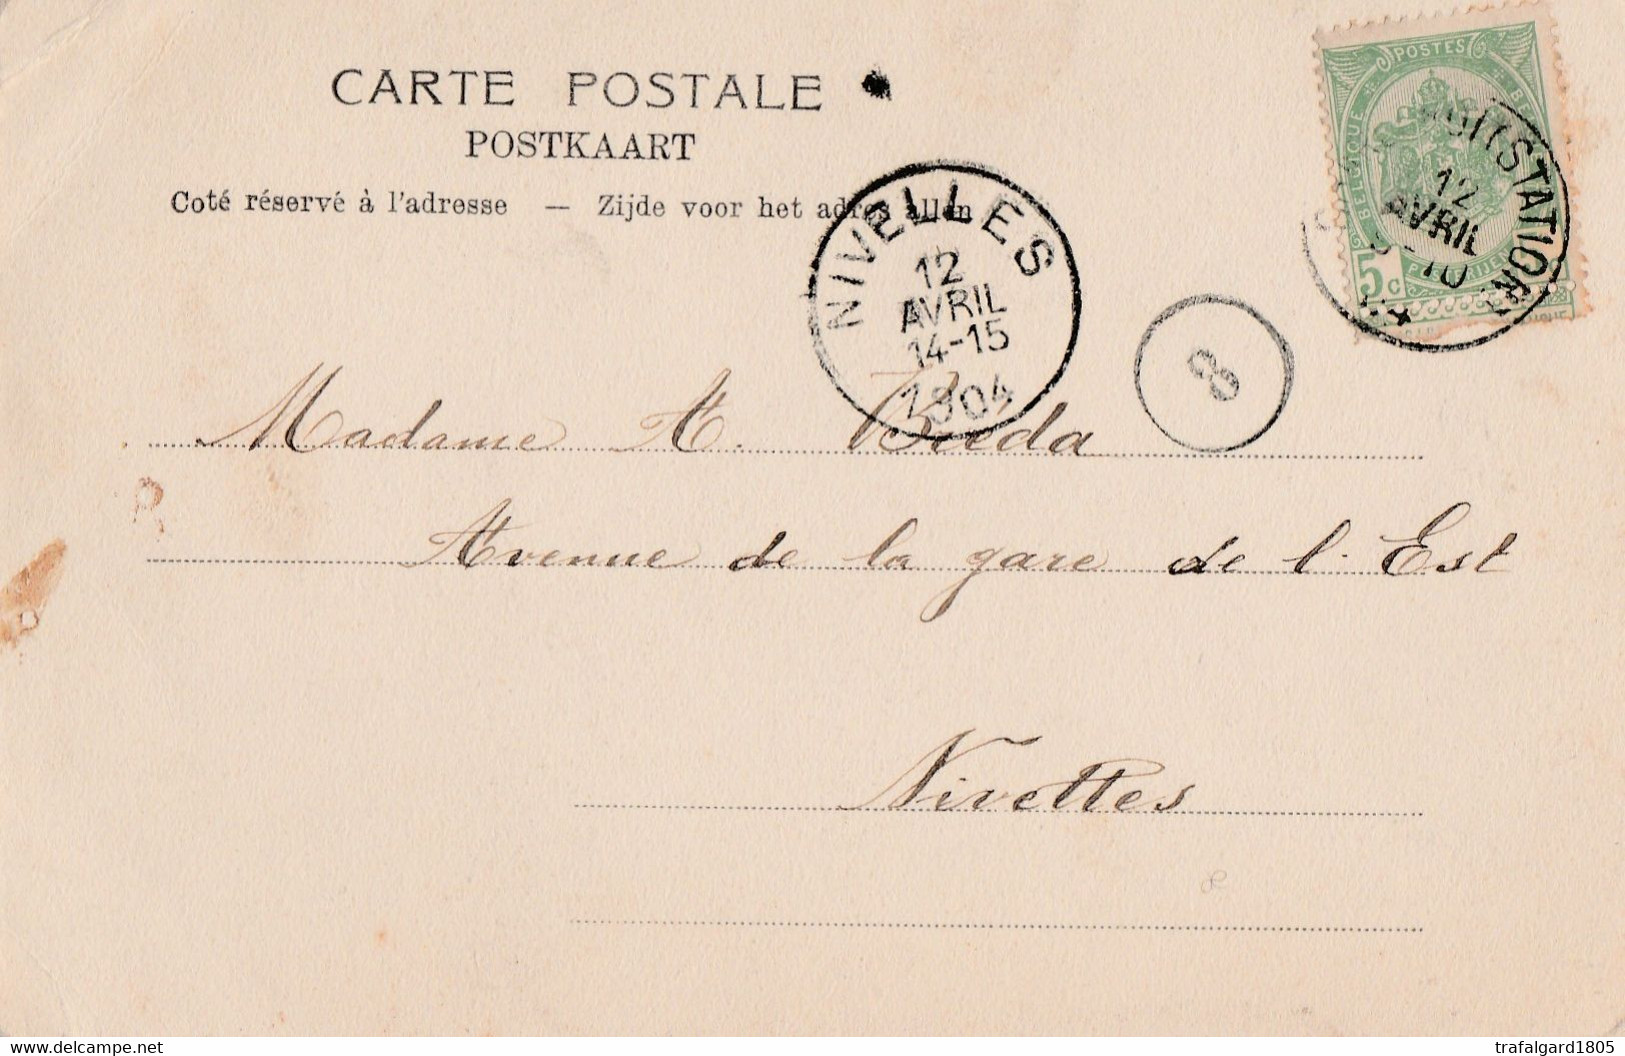 CARTE POSTALE
POSTKAART
Coté réservé à l'adresse — Zijde voor het adres allen
POSTES
BELGIQUE
5c
(STATION)
12
AVRIL
NIVELLES
12
AVRIL
14-15
1904
8
Madame A. Bréda
Avenue de la gare de l'Est
Nivelles
delcampe.net
trafalgard1805